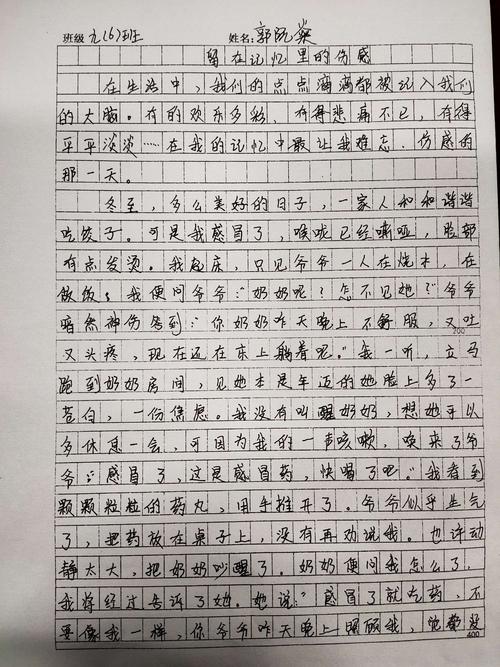 班级九(6)班 姓名:郭阮燊
留在记忆里的伤感
在生活中，我们的点点滴滴都被记入我们
的大脑。有的欢乐多彩，有得悲痛不已，有得
平平淡淡……在我的记忆中最让我难忘、伤感的
那一天。
冬至，多么美好的日子，一家人和和谐谐
吃饺子。可是我感冒了，喉咙已经嘶哑，脸部
有点发烫。我起床，只见爷爷一人在烧水，在
做饭；我便问爷爷：“奶奶呢？怎不见她？”爷爷
暗然神伤告到：“你奶奶昨天晚上不舒服，又吐
200
又头疼，现在还在东上躺着呢。”我一听，立马
跑到奶奶房间，见她本是年迈的她脸上多了一
苍白，一份焦虑。我没有叫醒奶奶，想她可以
多休息一会，可因为我的一声咳嗽，唤来了爷
爷：“感冒了，这是感冒药，快喝了吧。”我看到
颗颗粒粒的药丸，用手推开了。爷爷似乎生气
了，把药放在桌子上，没有再劝说我。也许动
静太大，把奶奶吵醒了。奶奶便问我怎么了，
我将经过告诉了她。她说：“感冒了就吃药，不
要像我一样，你爷爷昨天晚上照顾我，他都没
400